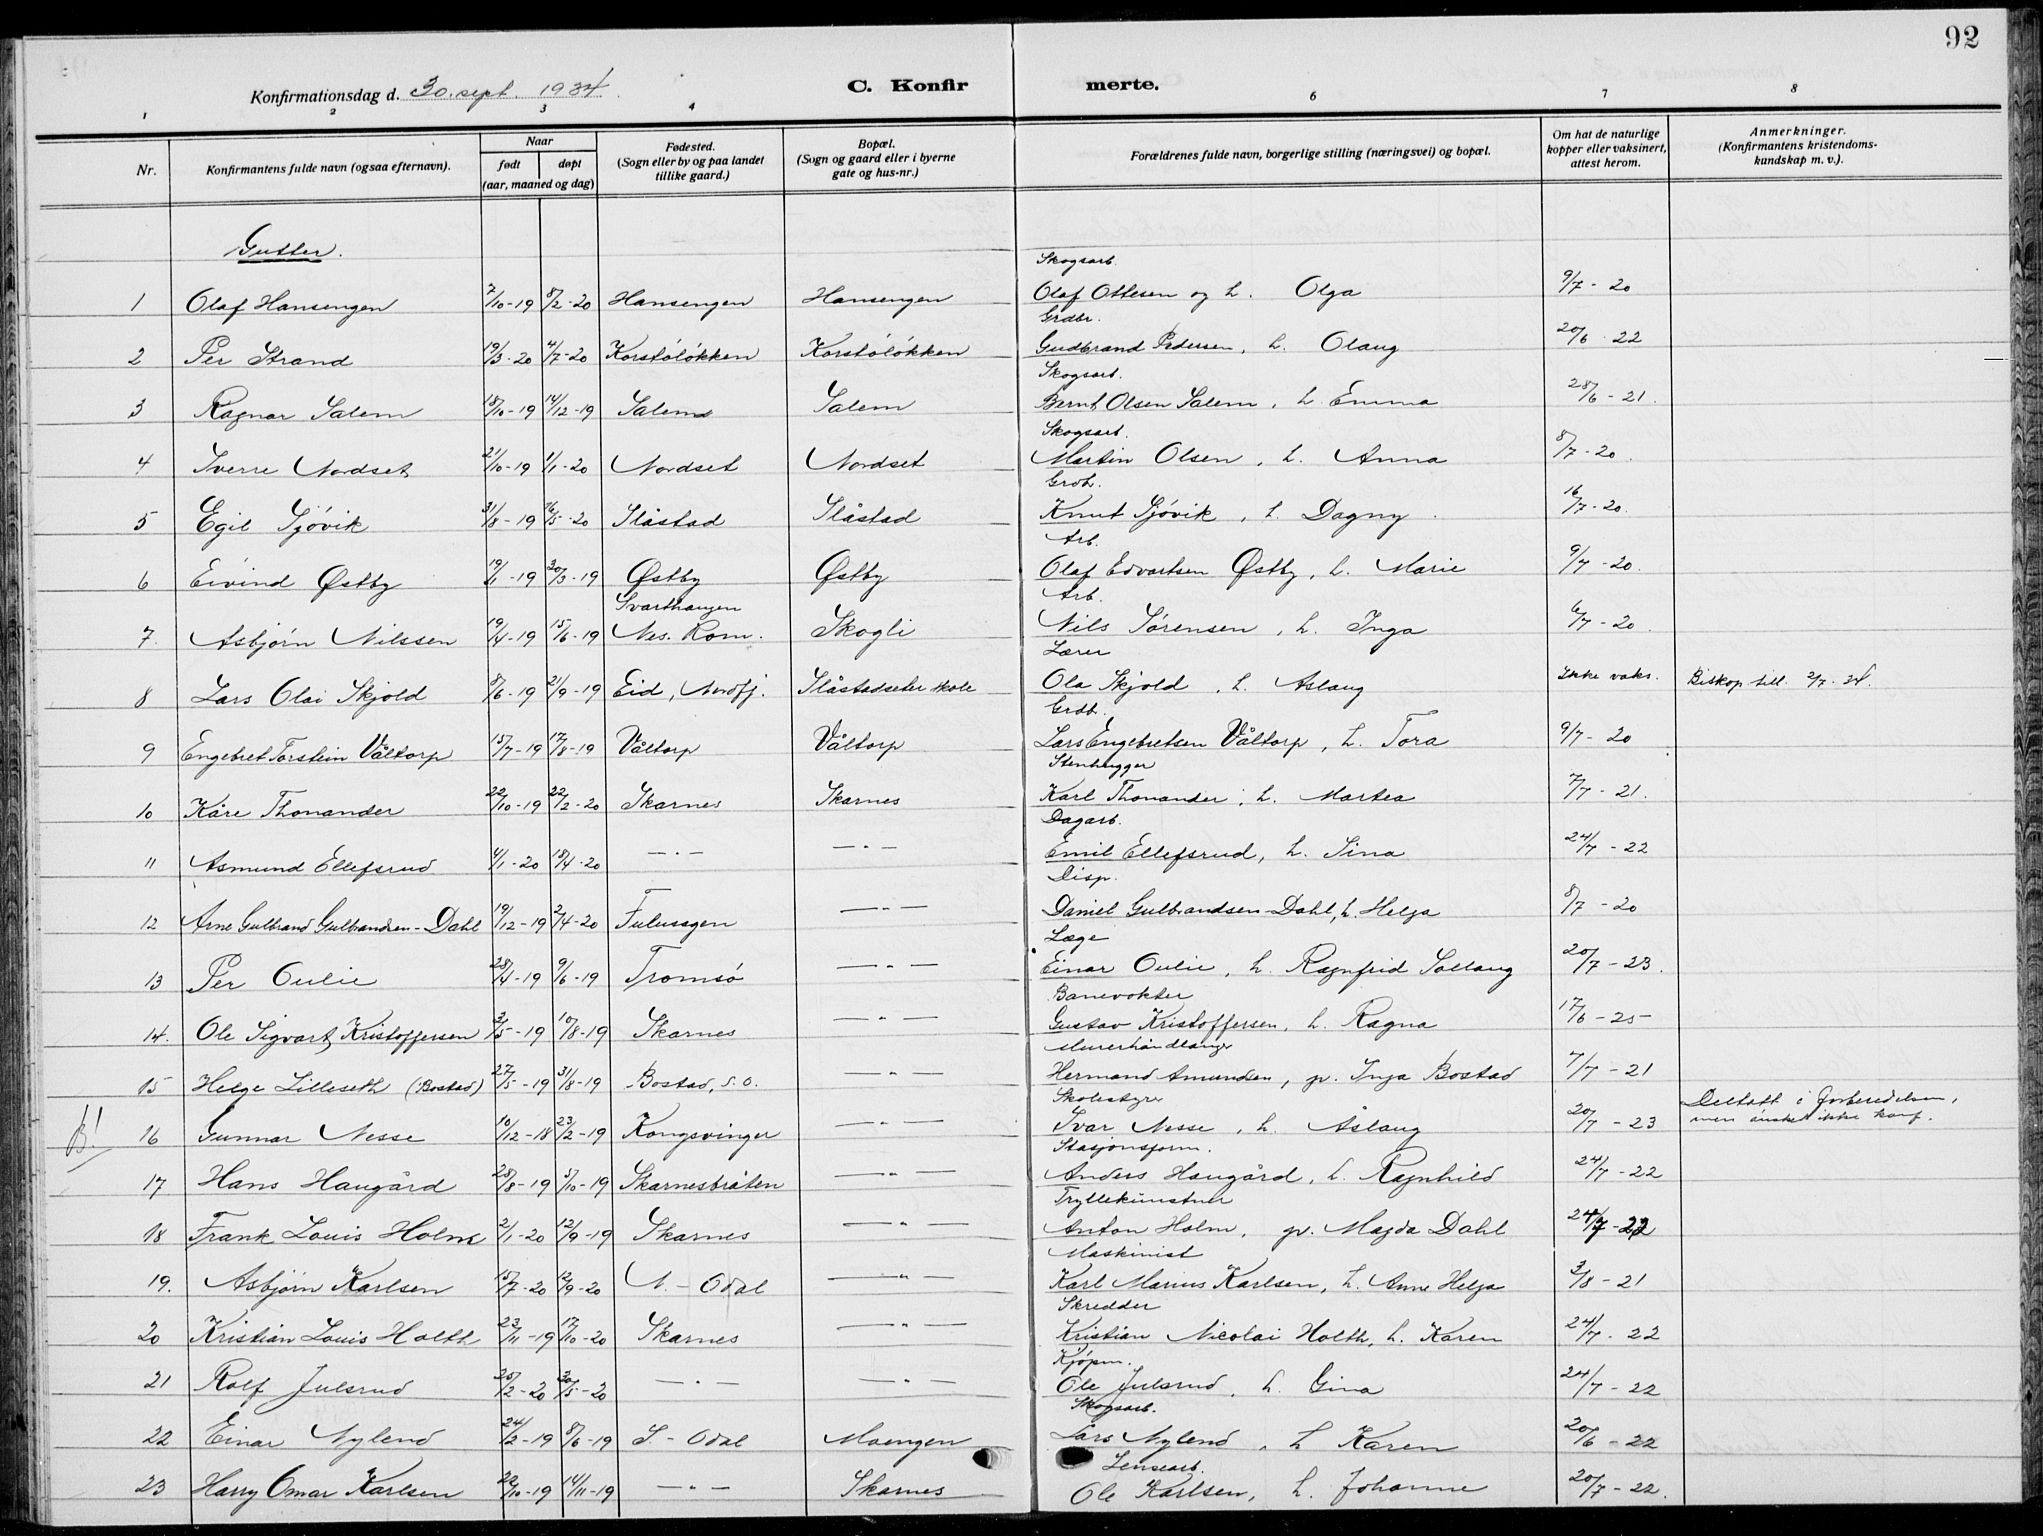 92
Konfirmationsdag d. 30. sept. 1934
C. Konfirmerte.
1 2 3 4 6 7 8
Nr. | Konfirmantens fulde navn (ogsaa efternavn). | Naar født døpt (aar, maaned og dag) | Fødested. (Sogn eller by og paa landet tillike gaard.) | Bopæl. (Sogn og gaard eller i byerne gate og hus-nr.) | Forældrenes fulde navn, borgerlige stilling (næringsvei) og bopæl. | Om hat de naturlige kopper eller vaksinert, attest herom. | Anmerkninger. (Konfirmantens kristendomskundskap m. v.).
Gutter.
1 Olaf Hansengen 7/10-19 8/2-20 Hansengen Hansengen Skogsarb. Olaf Ottesen og h. Olga 9/7-20
2 Per Strand 19/3-20 4/7-20 Korstöløkken Korstöløkken Grdbr. Gudbrand Pedersen, h. Olaug 20/6 22
3 Ragnar Salem 18/10-19 14/12-19 Salem Salem Skogsarb. Bernt Olsen Salem, h. Emma 28/6-21.
4 Sverre Nordset 21/10-19 1/1-20 Nordset Nordset Skogsarb. Martin Olsen, h. Anna 8/7-20.
5 Egil Sjøvik 31/8-19 16/5-20 Slåstad Slåstad Grdb. Knut Sjøvik, h Dagny 16/7-20.
6 Eivind Østby 19/1-19 30/3-19 Østby Østby Arb. Olaf Edvartsen Østby, h. Marie 9/7-20.
7. Asbjørn Nilssen 19/4-19 15/6-19 Svarthaugen Nes. Rom. Skogli Arb. Nils Sørensen, h. Inga 6/7-20.
8 Lars Olai Skjold 8/6-19 21/9-19 Eid, Nordfj. Slåstadseter skole Lærer Ola Skjold, h. Aslaug Ikke vaks. Biskop till. 2/7.34.
9 Engebret Torstein Våltorp 15/7-19 17/8-19 Våltorp Våltorp Grdb. Lars Engebretsen Våltorp, h. Tora 9/7-20
10 Kåre Thonander 22/10-19 22/2-20 Skarnes Skarnes Stenhugger Karl Thonander, h. Martea 7/7-21.
11 Asmund Ellefsrud 4/1-20 18/4-20 —"— —"— Dagarb. Emil Ellefsrud, h. Sina 24/7-22
12 Arne Gulbrand Gulbrandsen-Dahl 19/12-19 2/4-20 Fulusagen —"— Disp. Daniel Gulbrandsen-Dahl, h. Helga 8/7-20
13 Per Oulie 28/4-19 9/6-19 Tromsö —"— Læge Einar Oulie, h. Ragnfrid Sollaug 20/7-23.
14. Ole Sigvart Kristoffersen 3/5-19 10/8-19 Skarnes —"— Banevokter Gustav Kristoffersen, h. Ragna 17/6-25
15 Helge Lilleseth (Bostad) 27/5-19 31/8-19 Bostad, S.O. —"— Murerhåndlanger Hermand Amundsen, gr. Inga Bostad 7/7-21
16 Gunnar Nesse 10/12-18 23/2-19 Kongsvinger —"— Skolestyrer Ivar Nesse, h. Åslaug 20/7-23 Deltatt i forberedelsen, men ønsket ikke konf.
17 Hans Haugård 28/8-19 5/10-19 Skarnesbråten —"— Stasjonsform. Anders Haugård, h. Ragnhild 24/7-22
18 Frank Louis Holm 2/1-20 12/9-19 Skarnes —"— Tryllekunstner Anton Holm, gr. Magda Dahl 24/7-22
19. Asbjørn Karlsen 15/7-20 12/9-20 N.-Odal —"— Maskinist Karl Marius Karlsen, h. Anne Helga 3/8-21
20 Kristian Louis Holth 23/11-19 17/10-20 Skarnes —"— Skredder Kristian Nicolai Holth, h. Karen 24/7-22
21 Rolf Julsrud 25/2-20 30/5-20 —"— —"— Kjøpm. Ole Julsrud, h. Gina 24/7-22
22 Einar Nylend 24/2-19 8/6-19 S.-Odal Moengen Skogsarb. Lars Nylend, h Karen 20/6-22
23 Harry Omar Karlsen 22/10-19 14/11-19 —"— Skarnes Lensearb. Ole Karlsen, h. Johanne 20/7-22.